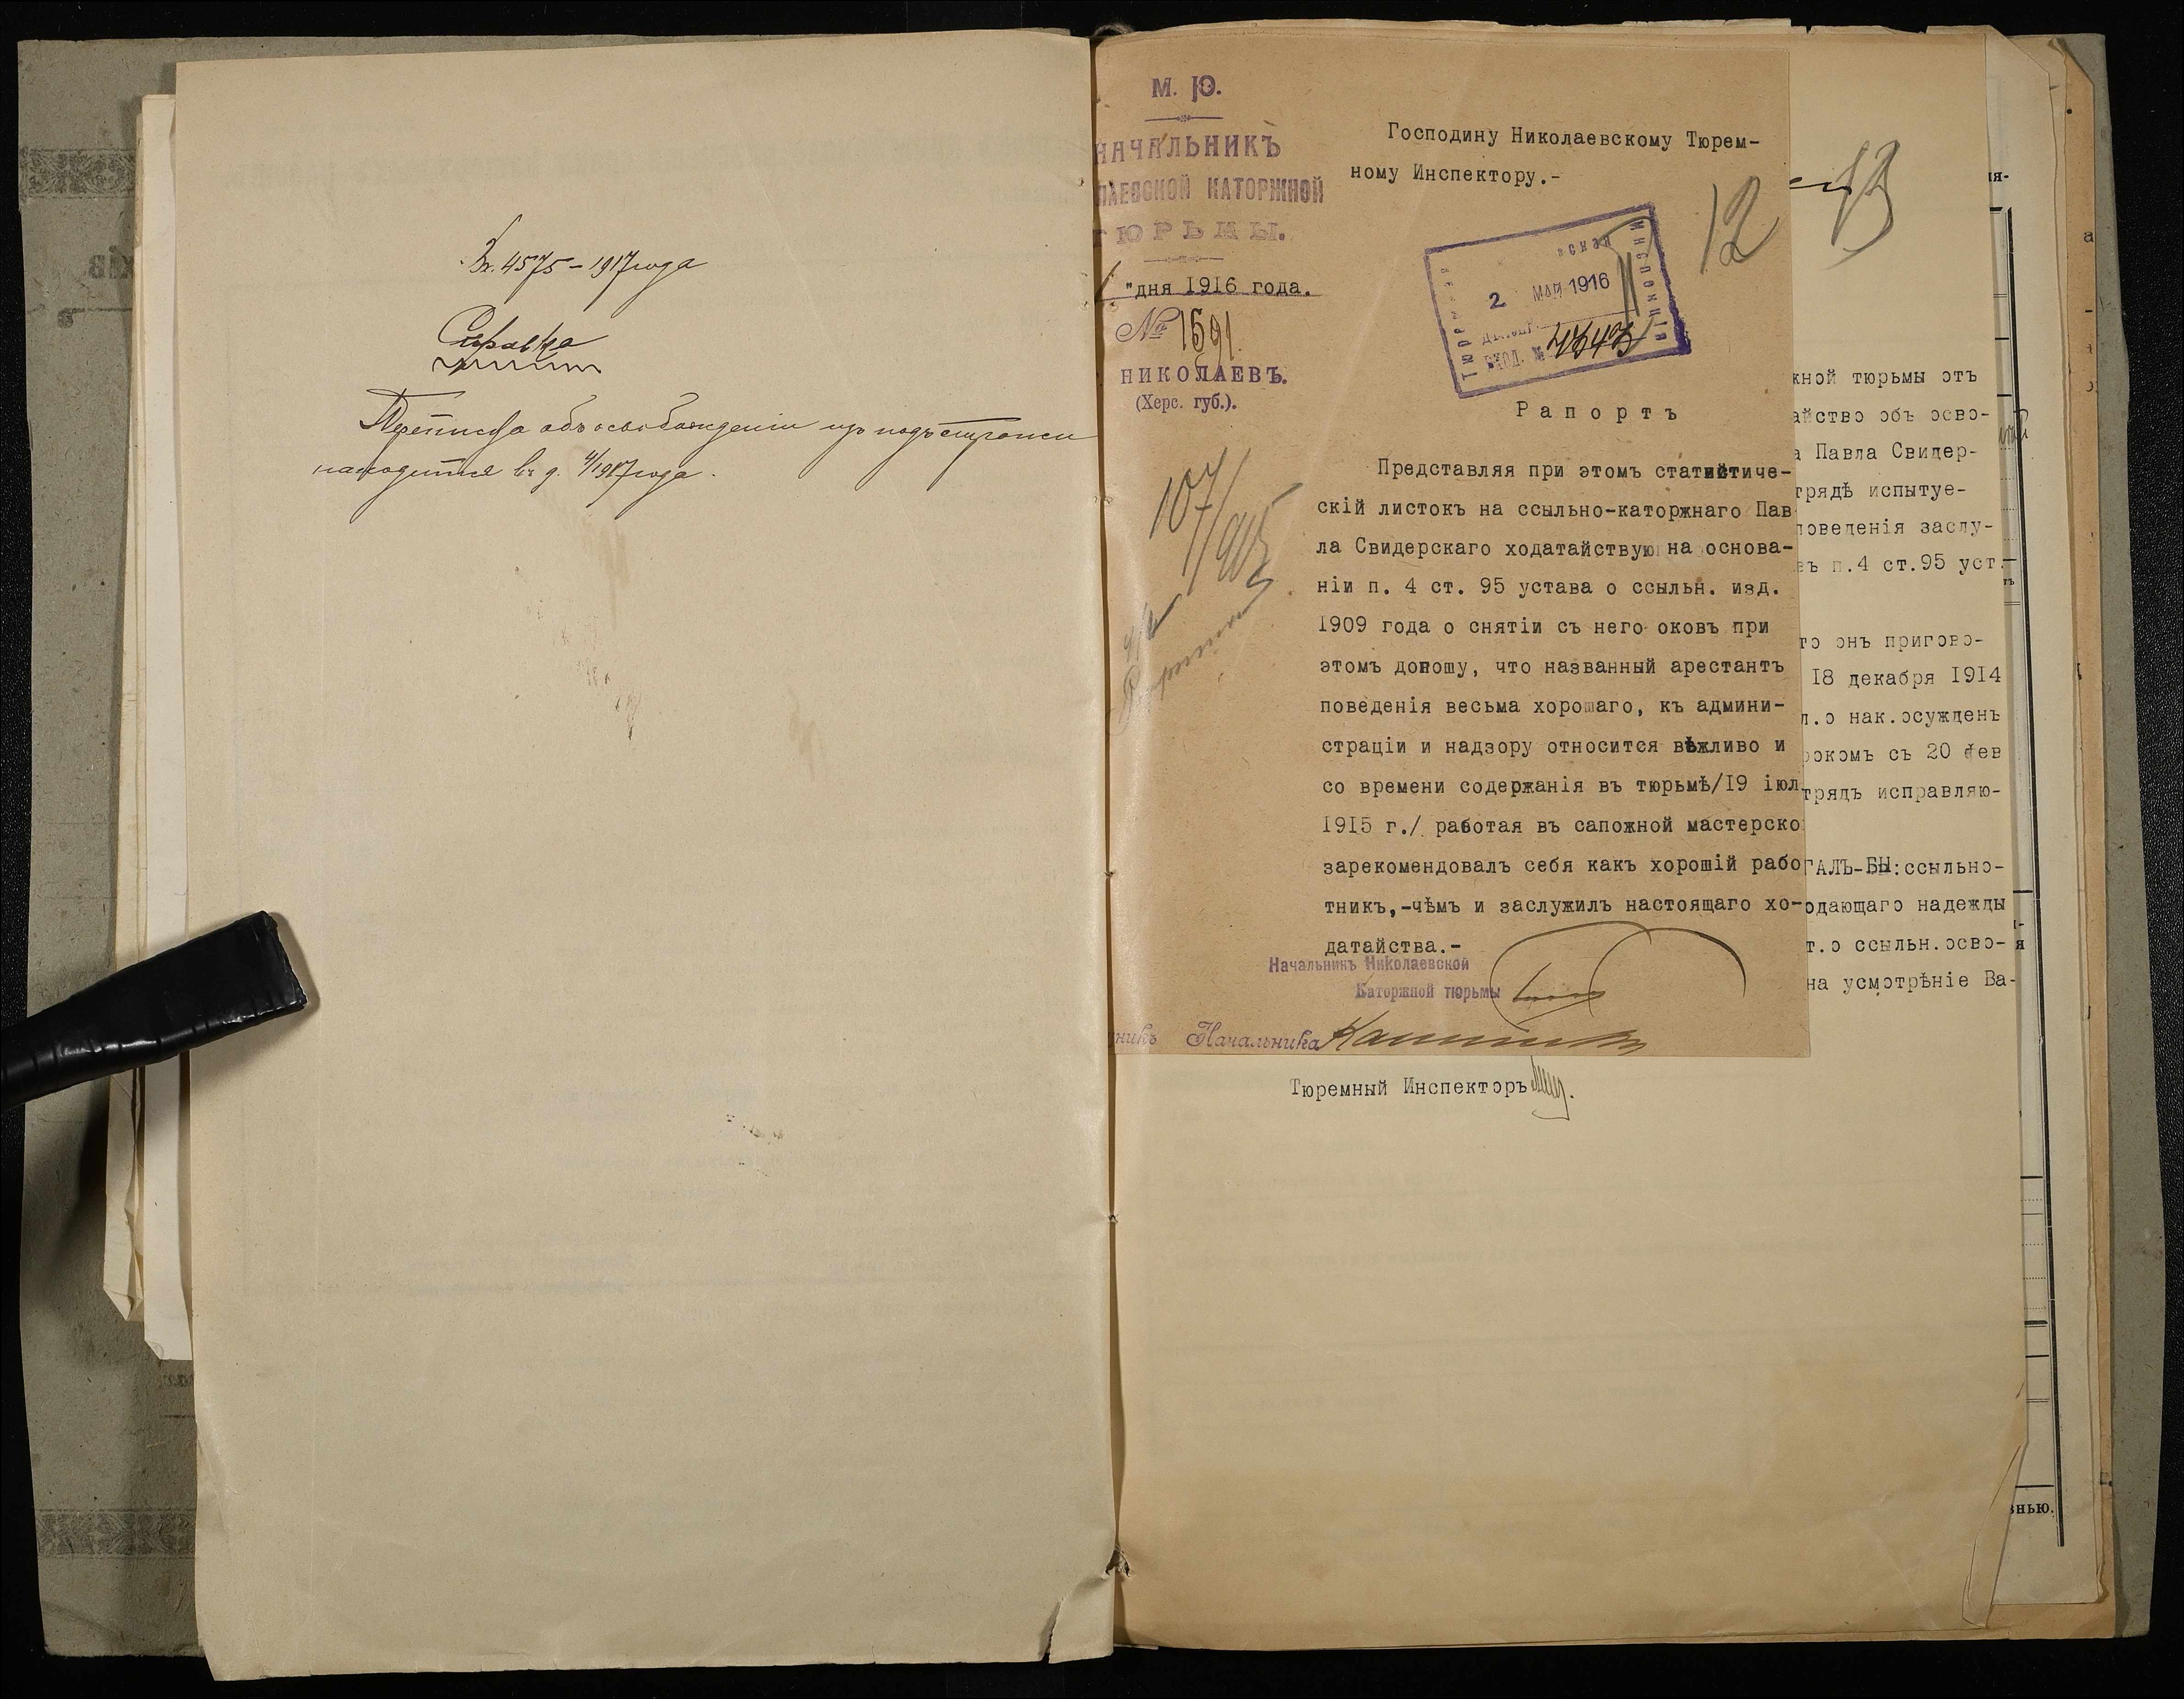 Вх. 4575 – 1917 года
Справка
Переписка объ освобожденіи изъ подъ стражи
находится въ д. 4/1917 года.
М. Ю.
НАЧАЛЬНИКЪ
ЛАЕВСКОЙ КАТОРЖНОЙ
ТЮРЬМЫ.
"дня 1916 года.
№ 1691
НИКОЛАЕВЪ.
(Херс. губ.).
107/915
Господину Николаевскому Тюрем-
ному Инспектору.-
12
13
2 МАЙ 1916
ВХОД. №
Рапортъ
Представляя при этомъ статистиче-
скій листокъ на ссыльно-каторжнаго Пав
ла Свидерскаго ходатайствую на основа-
ніи п. 4 ст. 95 устава о ссыльн. изд.
1909 года о снятіи съ него оковъ при
этомъ доношу, что названный арестантъ
поведенія весьма хорошаго, къ админи-
страціи и надзору относится вѣжливо и
со времени содержанія въ тюрьмѣ/19 іюл
1915 г./ работая въ сапожной мастерско
зарекомендовалъ себя какъ хорошій рабо
тникъ,-чѣмъ и заслужилъ настоящаго хо-
датайства.-
Начальникъ Николаевской
Каторжной тюрьмы
никъ Начальника
Тюремный Инспекторъ
жной тюрьмы отъ
айство объ осво-
а Павла Свидер-
трядѣ испытуе-
поведенія заслу-
въ п.4 ст.95 уст.
то онъ пригово-
18 декабря 1914
л.о нак.осужденъ
рокомъ съ 20 фев
трядъ исправляю-
ГАЛЪ-БЫ:ссыльно-
одающаго надежды
т.о ссыльн.осво-
на усмотрѣніе Ва-
знью.